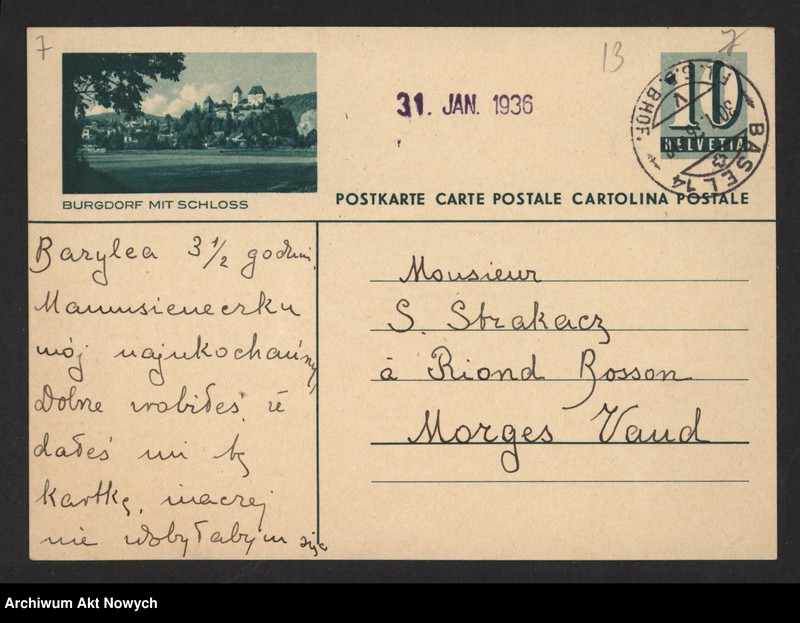 7
13
7
31. JAN. 1936
10
HELVETIA
BASEL 14
BHOF.
BURGDORF MIT SCHLOSS
POSTKARTE CARTE POSTALE CARTOLINA POSTALE
Bazylea 3 1/2 godzin.
Mamusieneczku
mój najukochańszy
Dobrze zrobiłeś, że
dałeś mi tę
kartkę, inaczej
nie
Monsieur
S. Strakacz
à Riond Bosson
Morges Vaud
Archiwum Akt Nowych